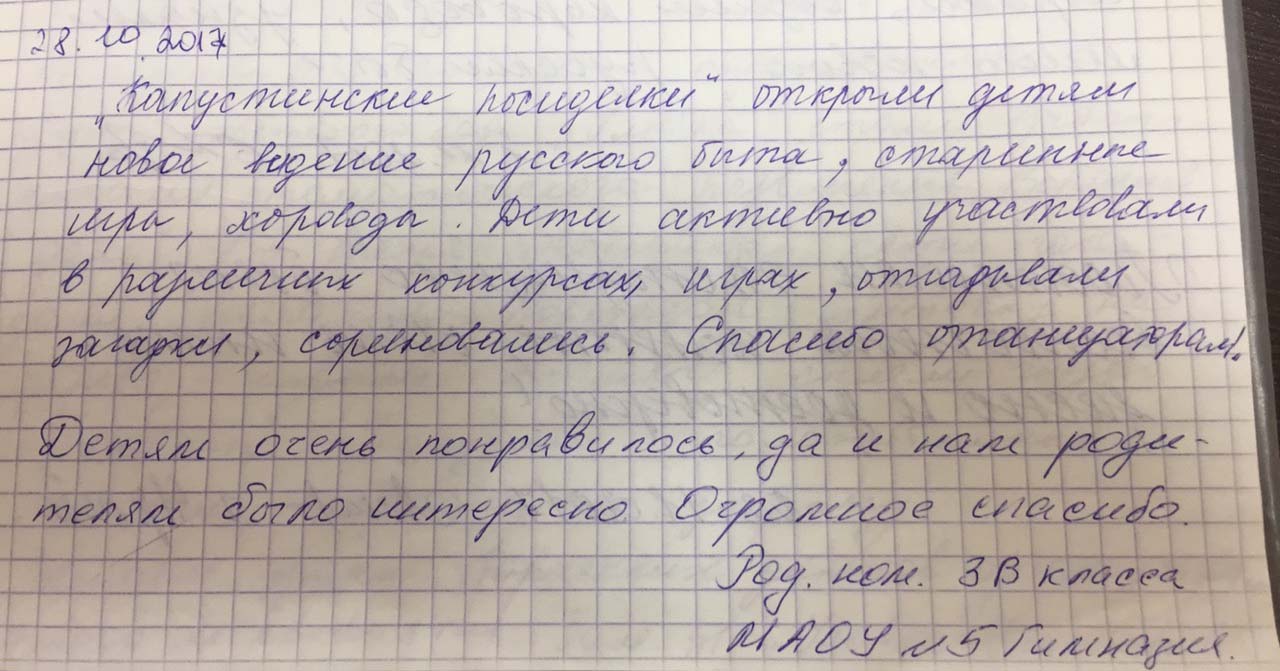 28.10.2017
„Капустинские посиделки" открыли детям
новое видение русского быта, старинные
игры, хороводы. Дети активно участвовали
в различных конкурсах, играх, отгадывали
загадки, соревновались. Спасибо организаторам!
Детям очень понравилось, да и нам роди-
телям было интересно. Огромное спасибо.
Род. ком. 3В класса
МАОУ №5 Гимназия.